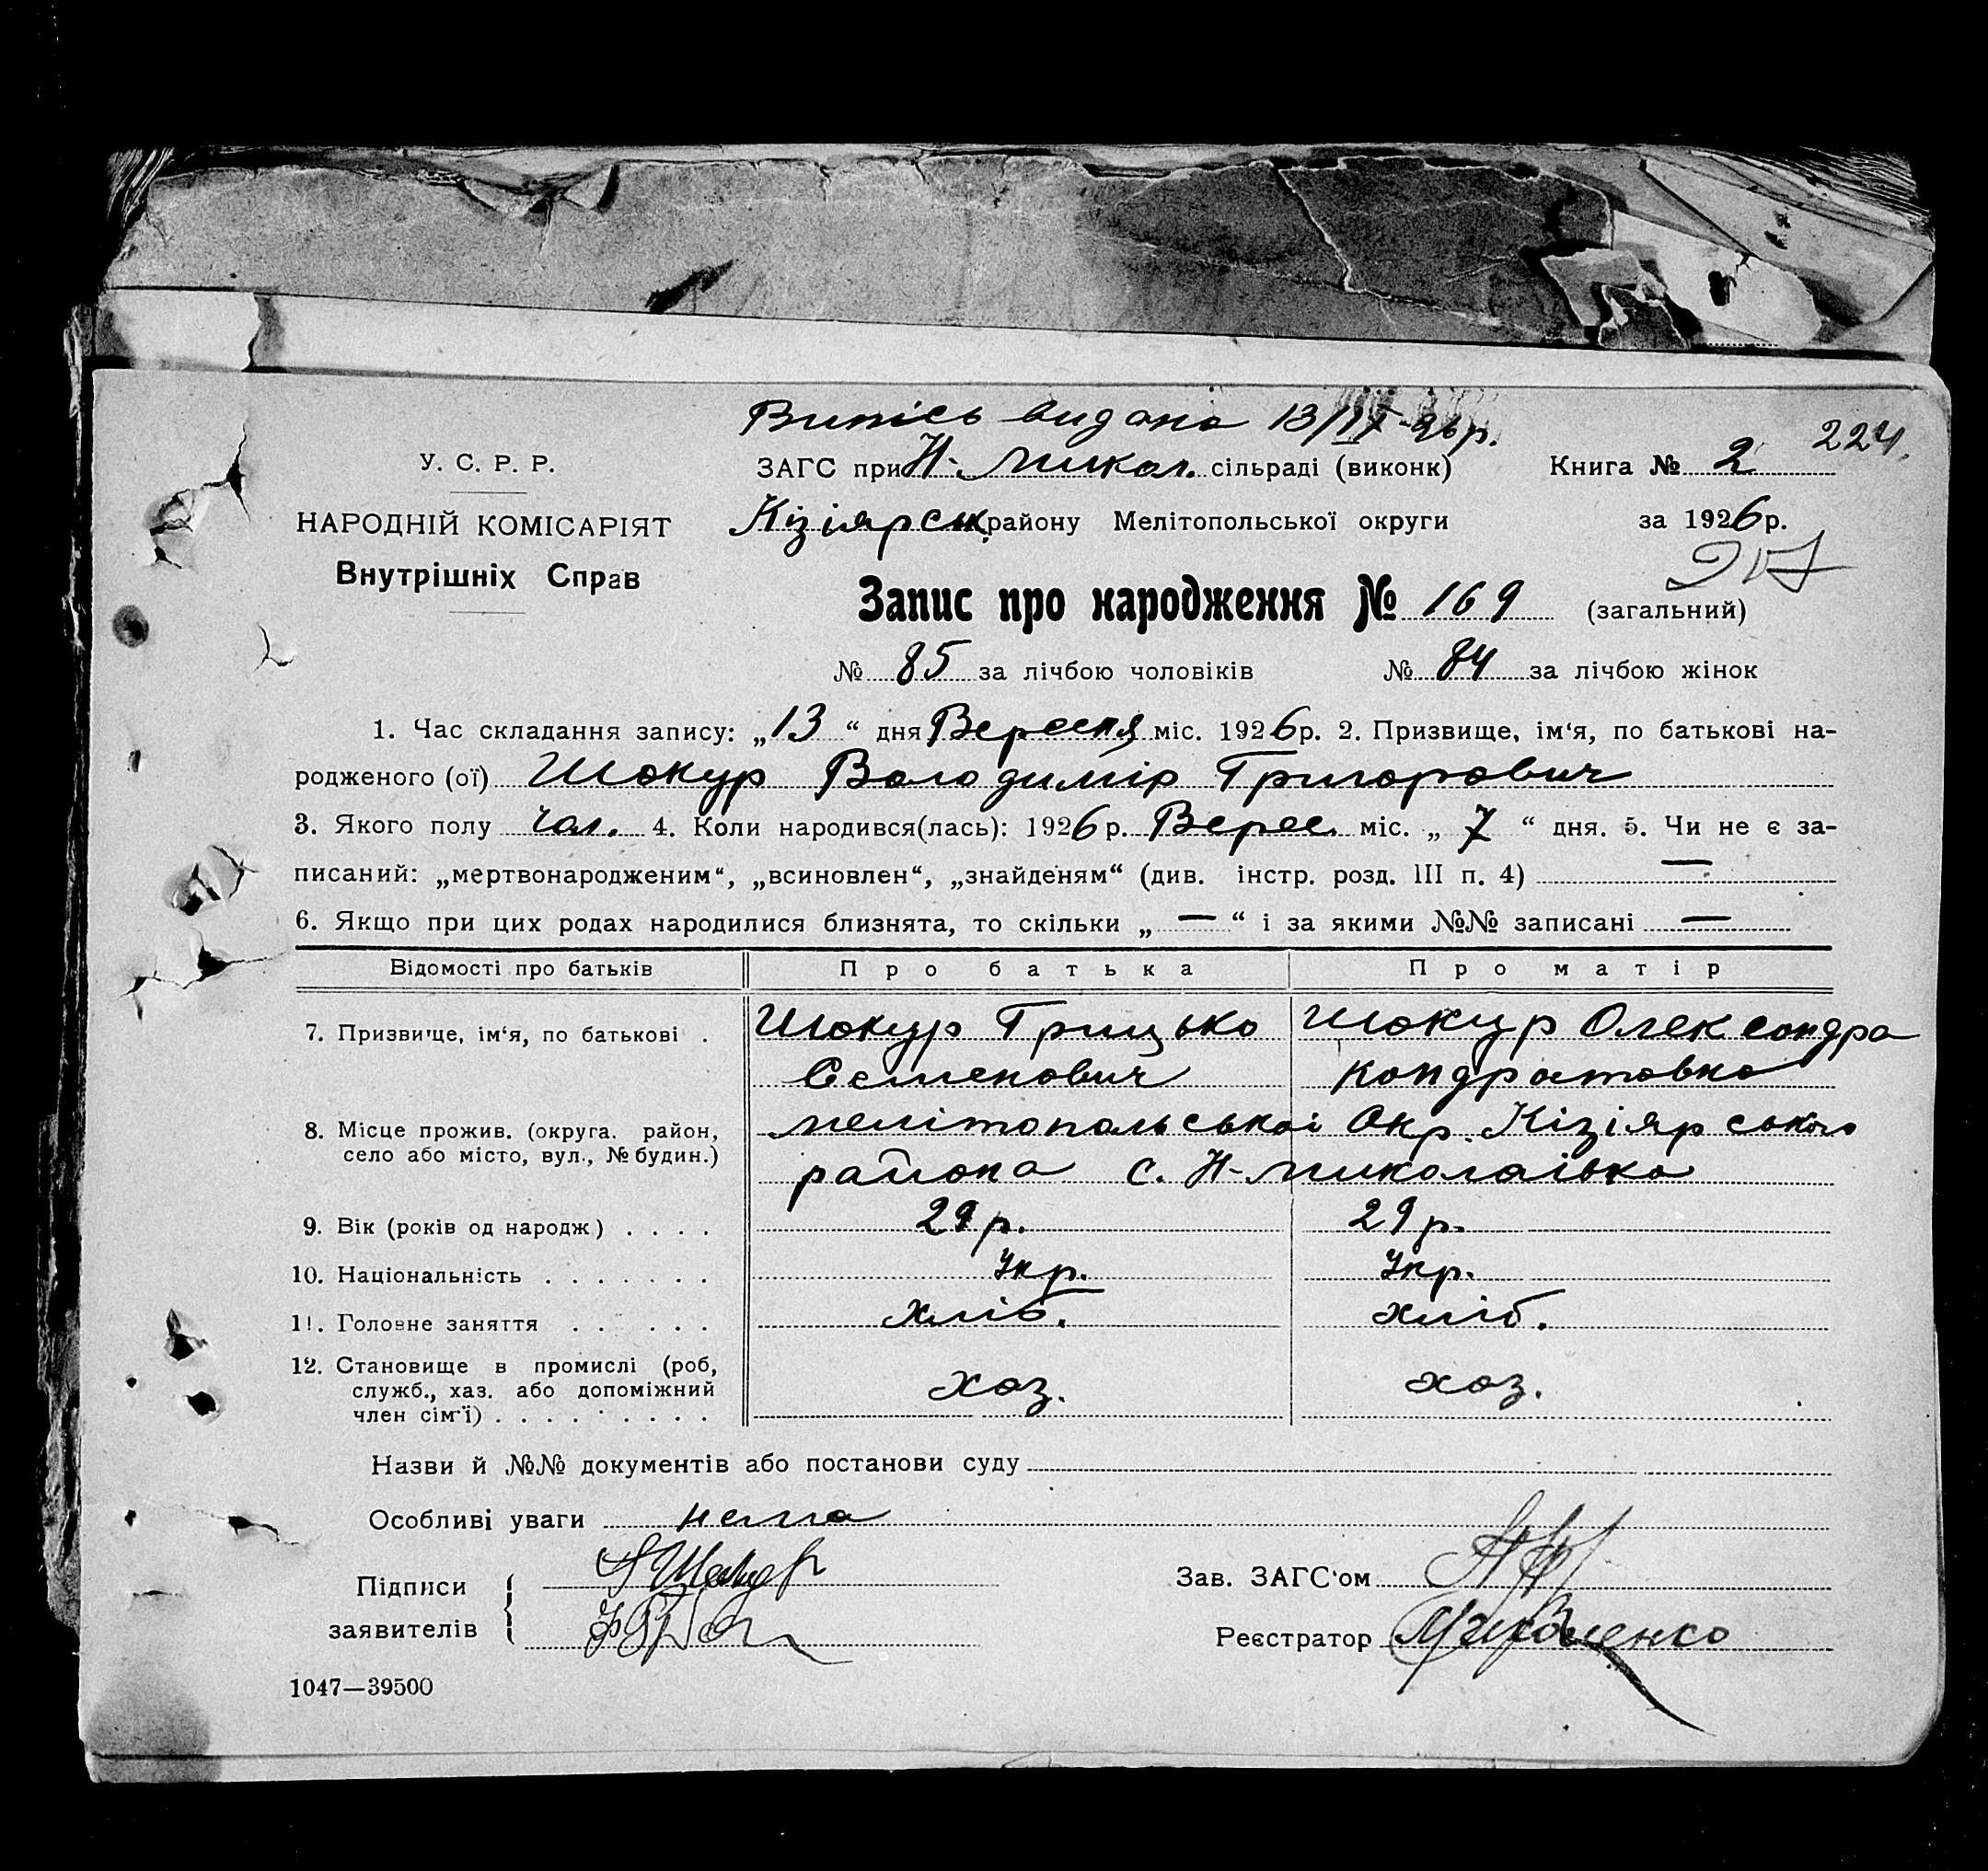 Випісь видана 13/IX-26р.
224.
У. С. Р. Р.
ЗАГС при Н-Микол. сільраді (виконк) Книга № 2
НАРОДНІЙ КОМІСАРІЯТ
Кізіярськ. району Мелітопольської округи за 1926 р.
Внутрішніх Справ
Запис про народження № 169 (загальний)
№ 85 за лічбою чоловіків № 84 за лічбою жінок
1. Час складання запису: „13“ дня Вересня міс. 1926 р. 2. Призвище, ім‘я, по батькові на-
родженого (ої) Шокур Володимір Григорович
3. Якого полу чол. 4. Коли народився(лась): 1926 р. Верес. міс. „7“ дня. 5. Чи не є за-
писаний: „мертвонародженим“, „всиновлен“, „знайденям“ (див. інстр. розд. III п. 4) —
6. Якщо при цих родах народилися близнята, то скільки „—“ і за якими №№ записані —
Відомості про батьків Про батька Про матір
7. Призвище, ім‘я, по батькові . Шокур Грицько Шокур Олександра
Семенович Кондратовна
8. Місце прожив. (округа. район, Мелітопольської Окр. Кізіярського
село або місто, вул., № будин.) района с. Н-Миколаївка
9. Вік (років од народж) . . . . 29 р. 29 р.
10. Національність . . . . . . . Укр. Укр.
11. Головне заняття . . . . . . хліб. хліб.
12. Становище в промислі (роб,
служб., хаз. або допоміжний хоз. хоз.
член сім‘ї) . . . . . . . . .
Назви й №№ документів або постанови суду
Особливі уваги нема
Підписи
Зав. ЗАГС‘ом
заявителів
Реєстратор
1047—39500